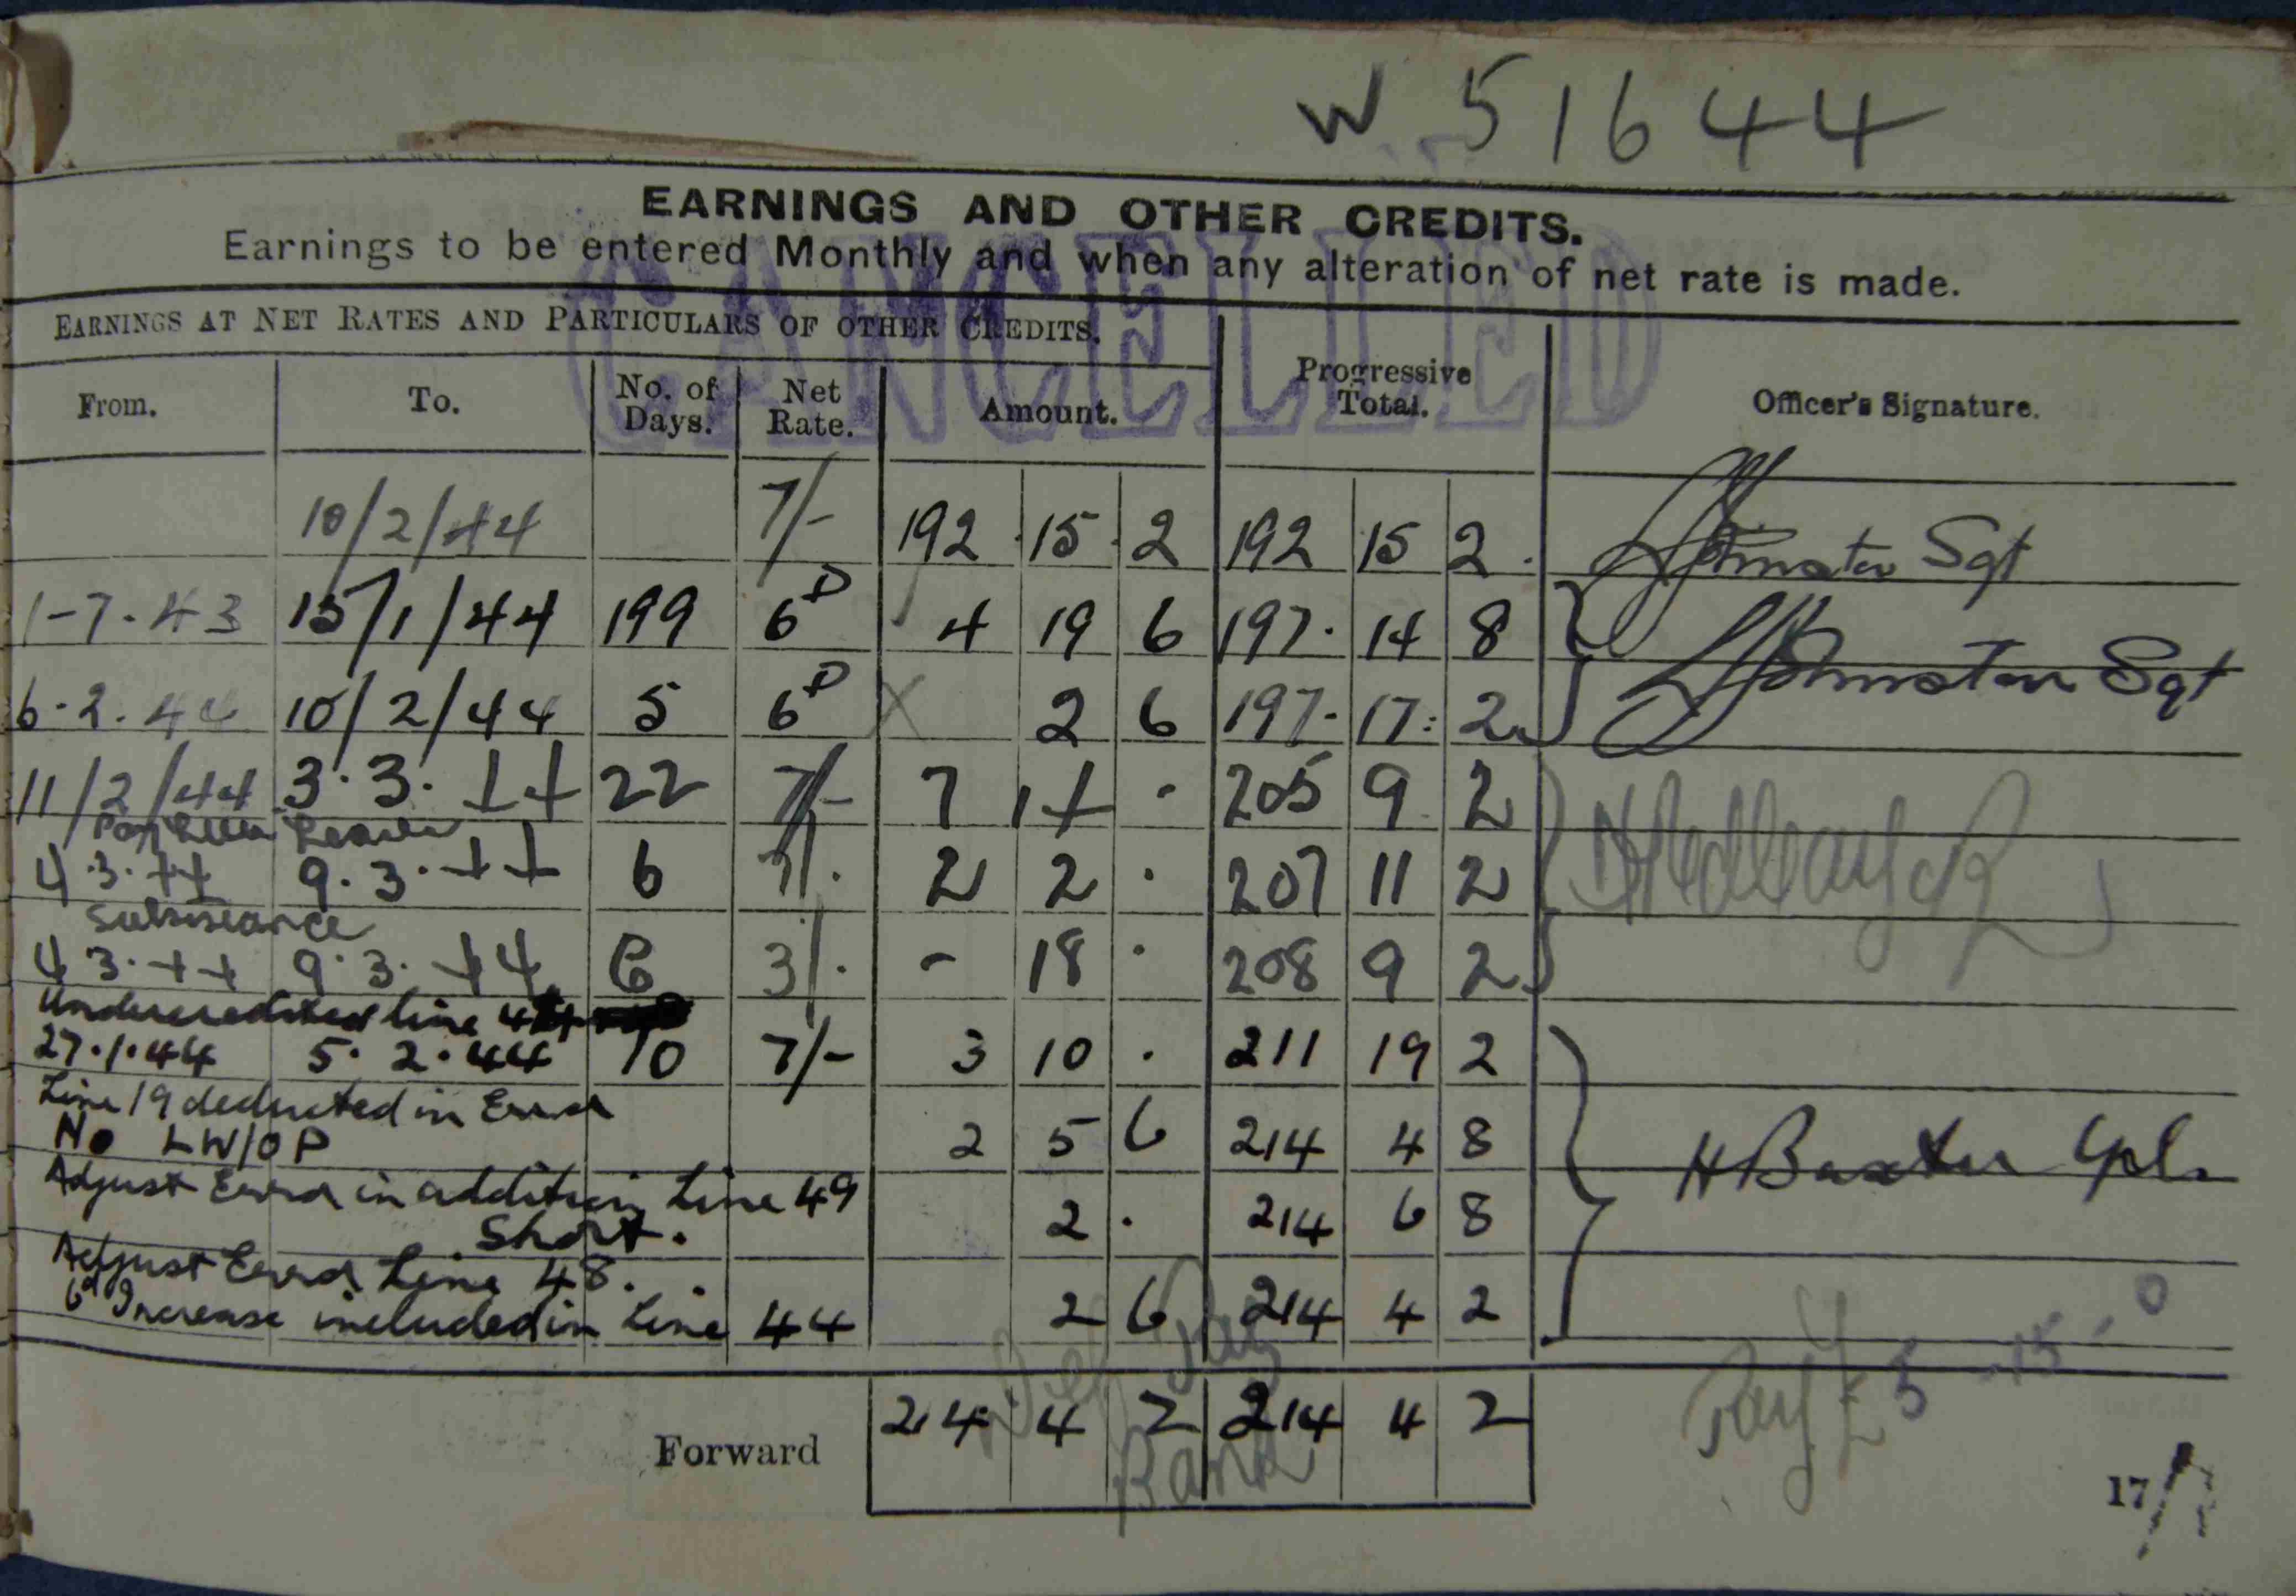 W 51644
EARNINGS AND OTHER CREDITS.
Earnings to be entered Monthly and when any alteration of net rate is made.
CANCELLED
EARNINGS AT NET RATES AND PARTICULARS OF OTHER CREDITS.
From. To. No. of Days. Net Rate. Amount. Progressive Total. Officer's Signature.
10/2/44 7/- 192 15 2 192 15 2 Johnston Sgt
1-7-43 15/1/44 199 6D 4 19 6 197 14 8
6.2.44 10/2/44 5 6D X 2 6 197 17 2 Johnston Sgt
11/2/44 3.3.44 22 7/- 7 14 . 205 9 2
Leave
4.3.44 9.3.44 6 7/. 2 2 . 207 11 2
Subsistance
4 3.44 9.3.44 6 3/. - 18 . 208 9 2
Undercredited line 44
27.1.44 5.2.44 10 7/- 3 10 . 211 19 2
Line 19 deducted in Error
No LW/OP 2 5 6 214 4 8 H Baxter Cpl
Adjust Error in addition Line 49
Short. 2 . 214 6 8
Adjust Error Line 48.
6d Increase included in Line 44 2 6 214 4 2
Pay £5-15-0
Forward 214 4 2 214 4 2
Def Pay
Bank
17